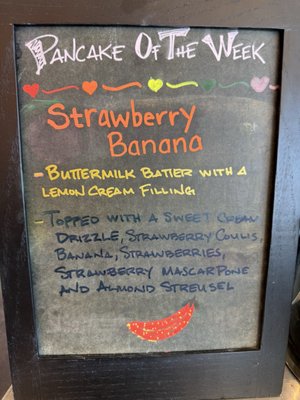 Pancake Of The Week
Strawberry
Banana
- Buttermilk Batter with a
Lemon Cream Filling
- Topped with a Sweet Cream
Drizzle, Strawberry Coulis,
Banana, Strawberries,
Strawberry Mascarpone
and Almond Streusel